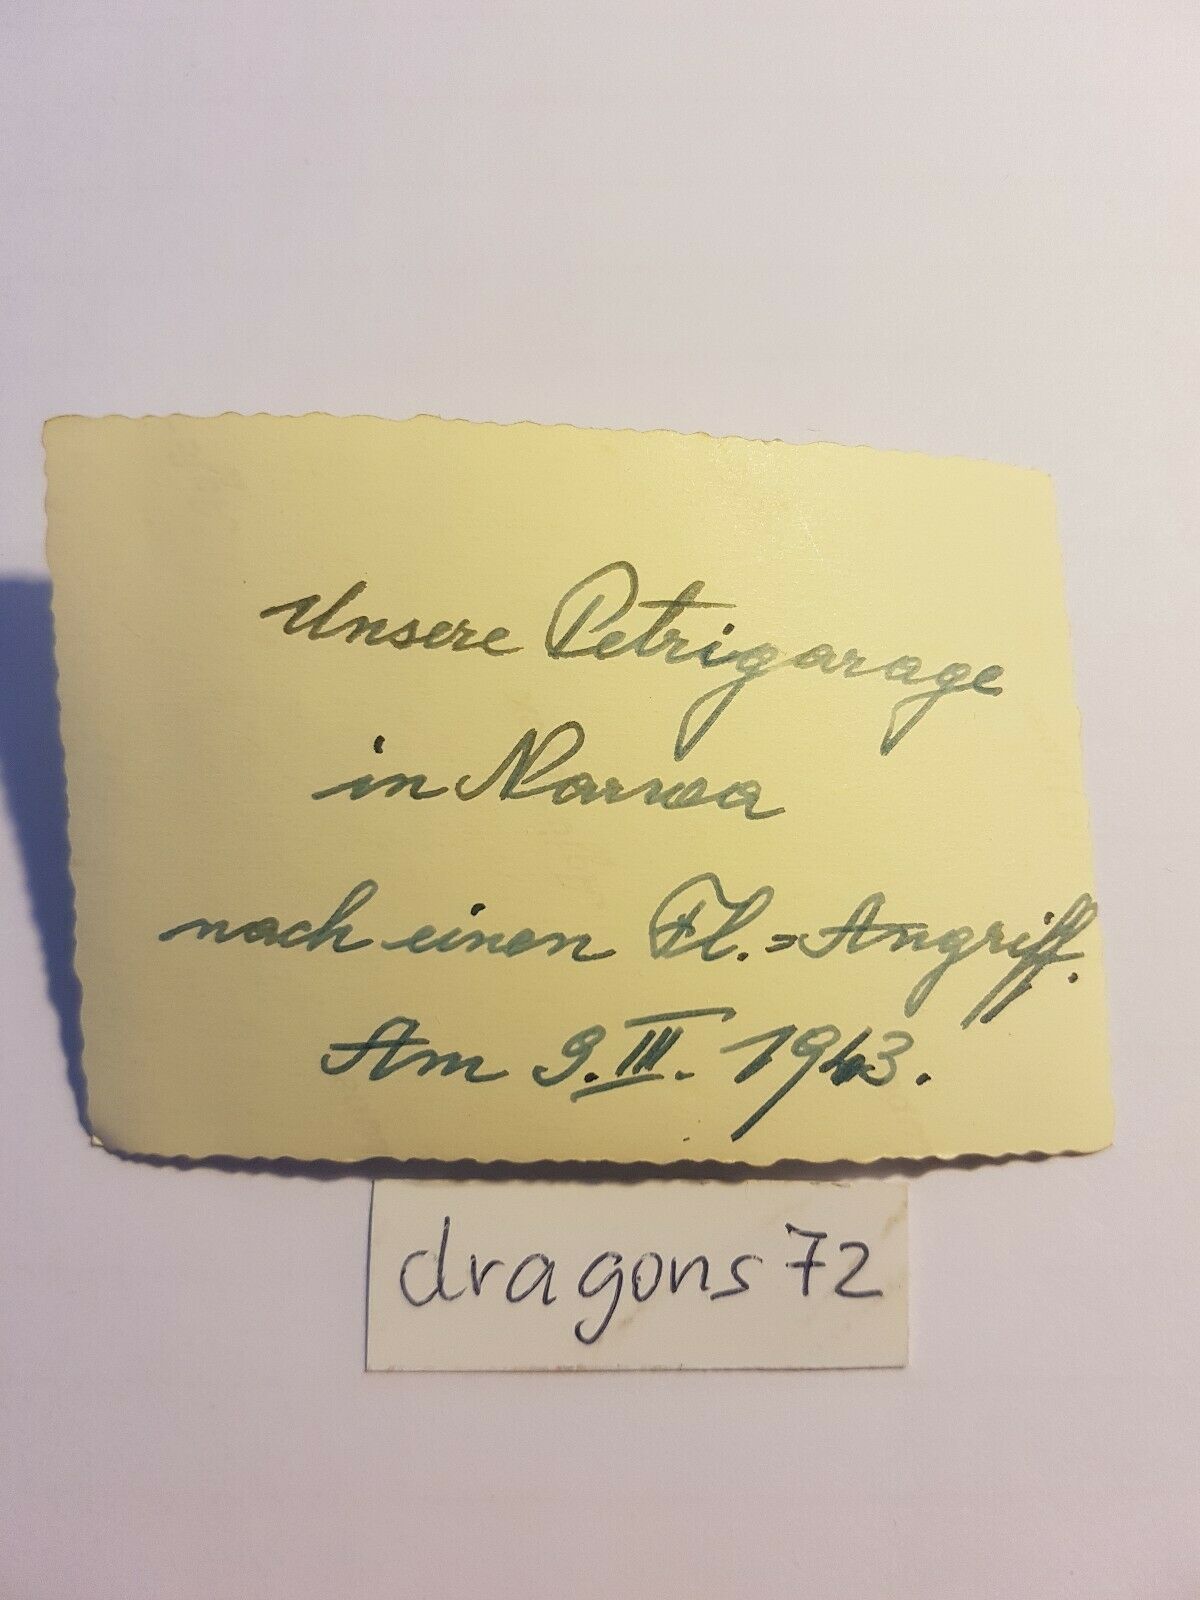 Unsere Petrigarage
in Narwa
nach einen Fl.=Angriff.
Am 9.III. 1943.
dragons72